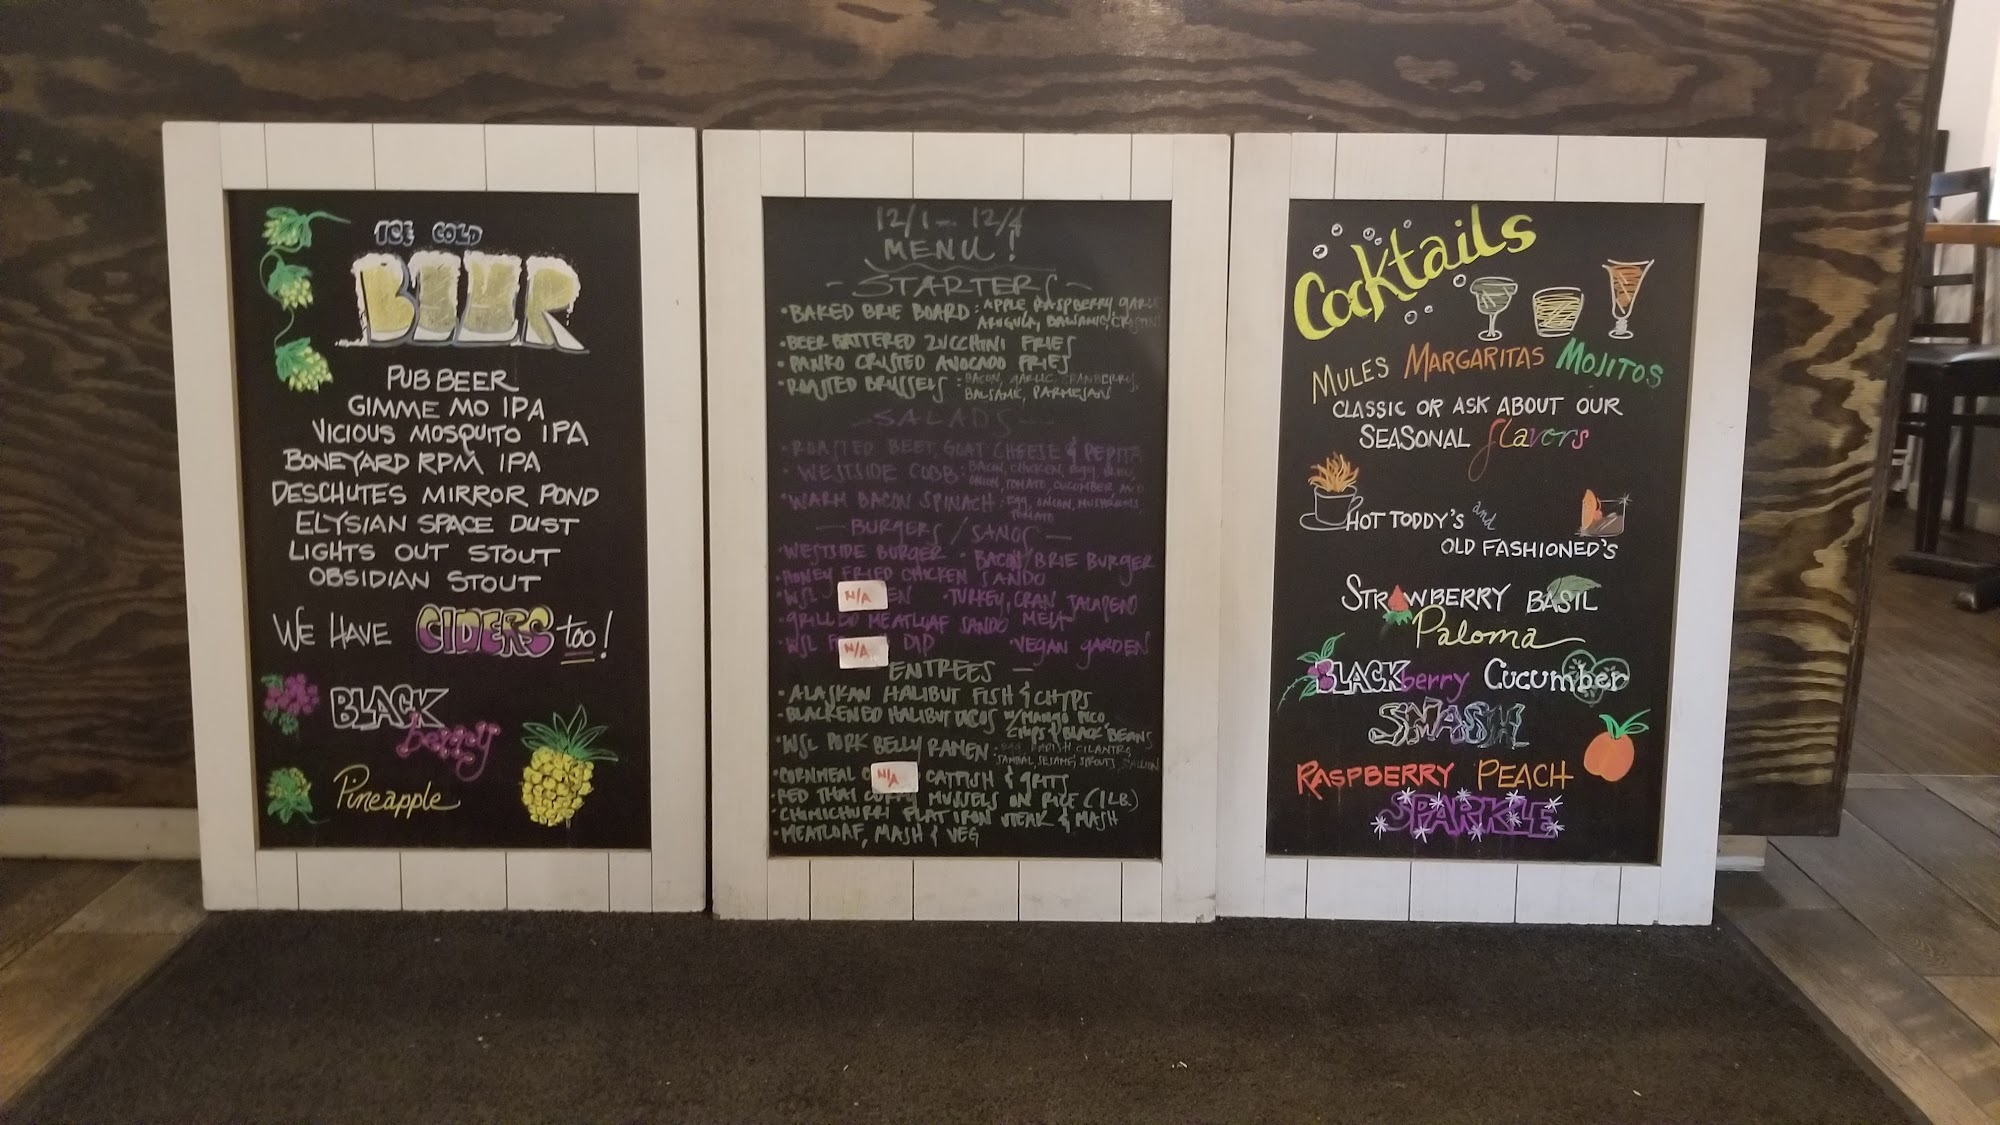 ICE COLD
BEER
PUB BEER
GIMME MO IPA
VICIOUS MOSQUITO IPA
BONEYARD RPM IPA
DESCHUTES MIRROR POND
ELYSIAN SPACE DUST
LIGHTS OUT STOUT
OBSIDIAN STOUT
WE HAVE CIDERS too!
BLACK
berry
Pineapple
12/1 - 12/4
MENU!
- STARTERS -
• BAKED BRIE BOARD: APPLE RASPBERRY, GARLIC
ARUGULA, BALSAMIC, CROSTINI
• BEER BATTERED ZUCCHINI FRIES
• PANKO CRUSTED AVOCADO FRIES
• ROASTED BRUSSELS: BACON, GARLIC, CRANBERRY,
BALSAMIC, PARMESAN
- SALADS -
• ROASTED BEET, GOAT CHEESE & PEPITA
• WESTSIDE COBB: BACON, CHICKEN, EGG,
ONION, TOMATO, CUCUMBER
• WARM BACON SPINACH: EGG, ONION, MUSHROOMS,
TOMATO
- BURGERS / SANDOS -
• WESTSIDE BURGER • BACON/BRIE BURGER
• HONEY FRIED CHICKEN SANDO
• WSL N/A EN • TURKEY, CRAN JALAPENO
• GRILLED MEATLOAF SANDO MELT
• WSL N/A DIP • VEGAN GARDEN
ENTREES -
• ALASKAN HALIBUT FISH & CHIPS
• BLACKENED HALIBUT TACOS W/ MANGO PICO,
CHIPS & BLACK BEANS
• WSL PORK BELLY RAMEN: EGG, RADISH, CILANTRO,
SAMBAL, SESAME, SPROUTS, SCALLION
• CORNMEAL N/A CATFISH & GRITS
• RED THAI CURRY MUSSELS ON RICE (1 LB.)
• CHIMICHURRI FLAT IRON STEAK & MASH
• MEATLOAF, MASH & VEG
Cocktails
MULES MARGARITAS MOJITOS
CLASSIC OR ASK ABOUT OUR
SEASONAL flavors
HOT TODDY'S and
OLD FASHIONED'S
STRAWBERRY BASIL
Paloma
BLACKberry Cucumber
SMASH
RASPBERRY PEACH
SPARKLE